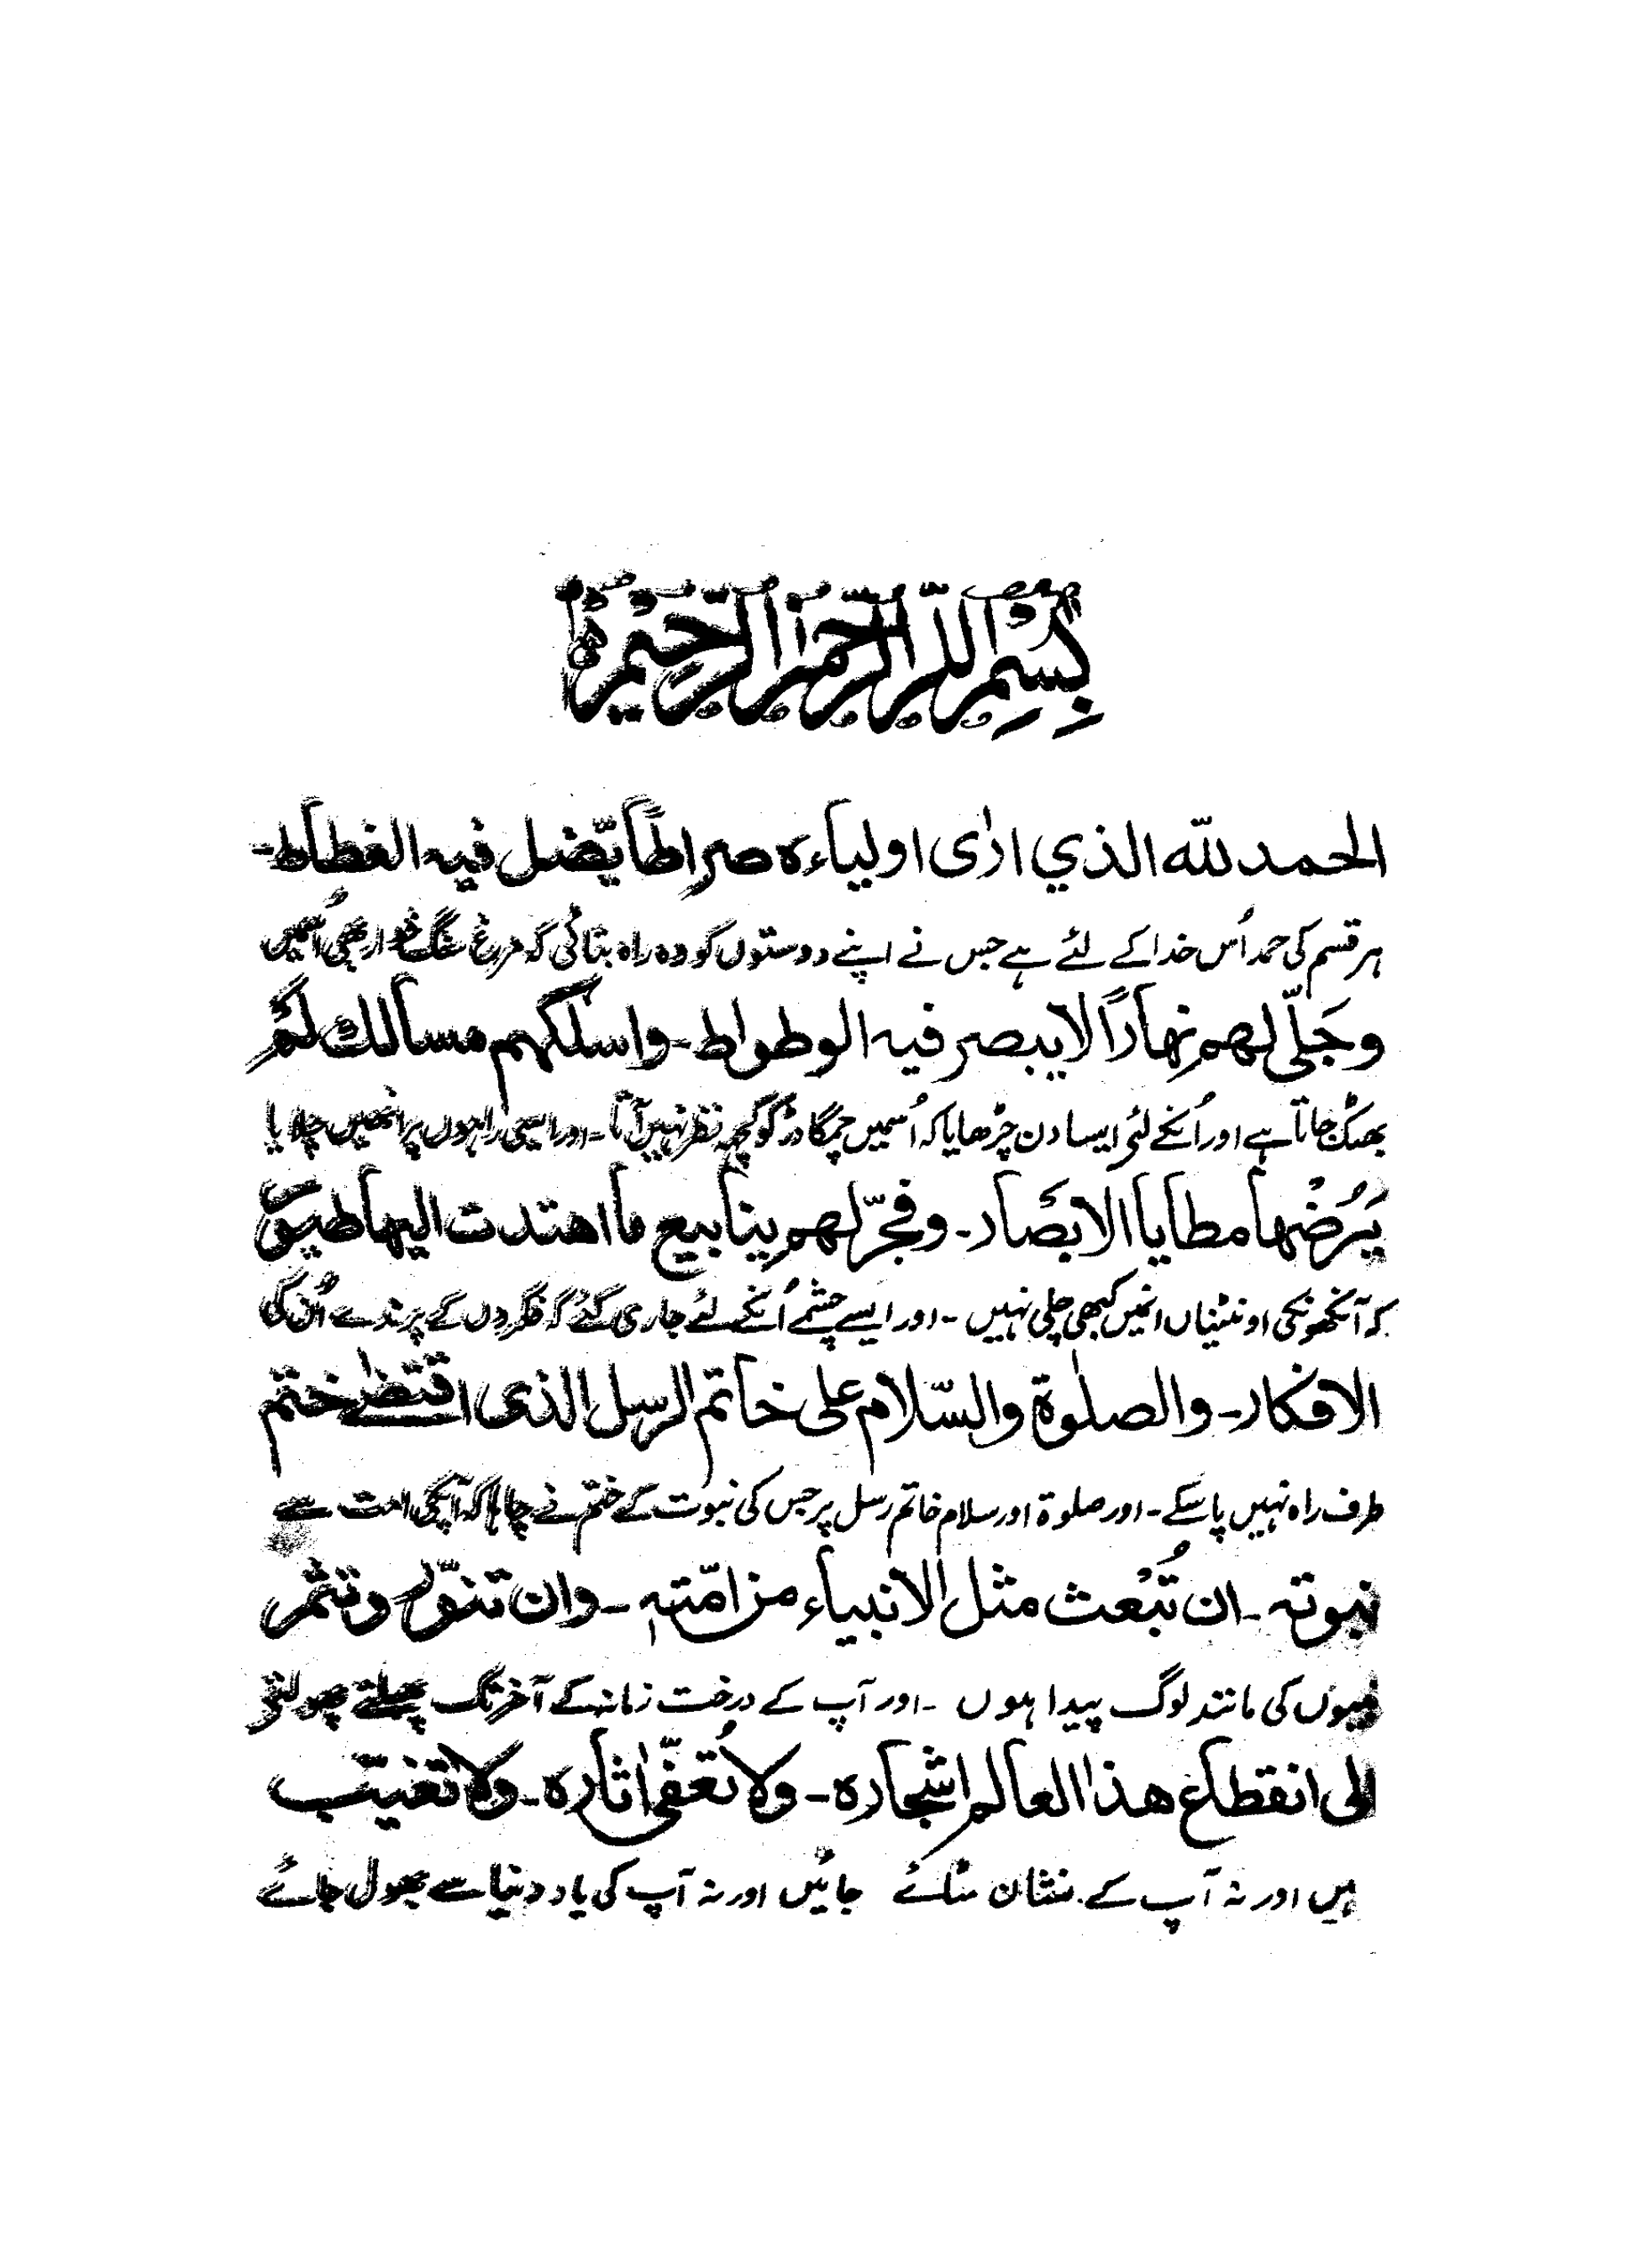 بِسْمِ اللّٰہِ الرَّحْمٰنِ الرَّحِیْمِ
الحمد للّٰه الذي ارٰی اولیاءہ صراطًا یّضل فیہ الغطاط۔
ہر قسم کی حمد اُس خدا کے لئے ہے جس نے اپنے دوستوں کو وہ راہ بتائی کہ مرغ سنگ خوار بھی اُسمیں
وجَلّی لهم نِهارًا لا یبصر فیہ الوطواط۔ واسلکهم مسالك لم
بھٹک جاتا ہے اور اُنکے لئے ایسا دن چڑھایا کہ اُسمیں چمگادڑ کو کچھ نظر نہیں آتا۔ اور ایسی راہوں پر انھیں چلایا
یَرُضْها مطایا الابصَار۔ وفجّر لهم ینابیع ما اهتدت الیها طیور
کہ آنکھونکی اونٹنیاں انمیں کبھی چلی نہیں ۔ اور ایسے چشمے اُنکے لئے جاری کئے کہ فکروں کے پرندے اُن کی
الافکار۔ والصلٰوة والسّلام علی خاتم الرسل الذی اقتضٰی ختم
طرف راہ نہیں پا سکے۔ اور صلوة اور سلام خاتم رسل پر جس کی نبوت کے ختم نے چاہا کہ آپکی امت سے
نبوتہ ۔ ان تُبْعث مثل الانبیاء من امّتہٖ ۔ وان تنوّر وتثمر
نبیوں کی مانند لوگ پیدا ہوں ۔ اور آپ کے درخت زمانہ کے آخر تک پھلتے پھولتے
الی انقطاع هذا العالم اشجارہ۔ ولا تُعفّٰی اٰثارہ۔ ولا تغیّب
ہیں اور نہ آپ کے نشان مٹائے جائیں اور نہ آپ کی یاد دنیا سے بھول جائے